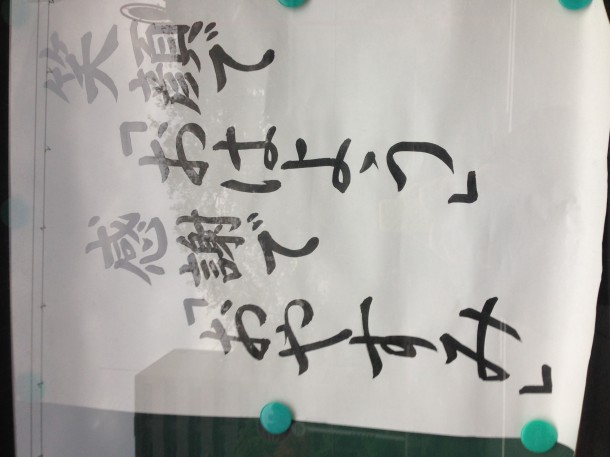 笑顔で
「おはよう」
感謝で
「おやすみ」